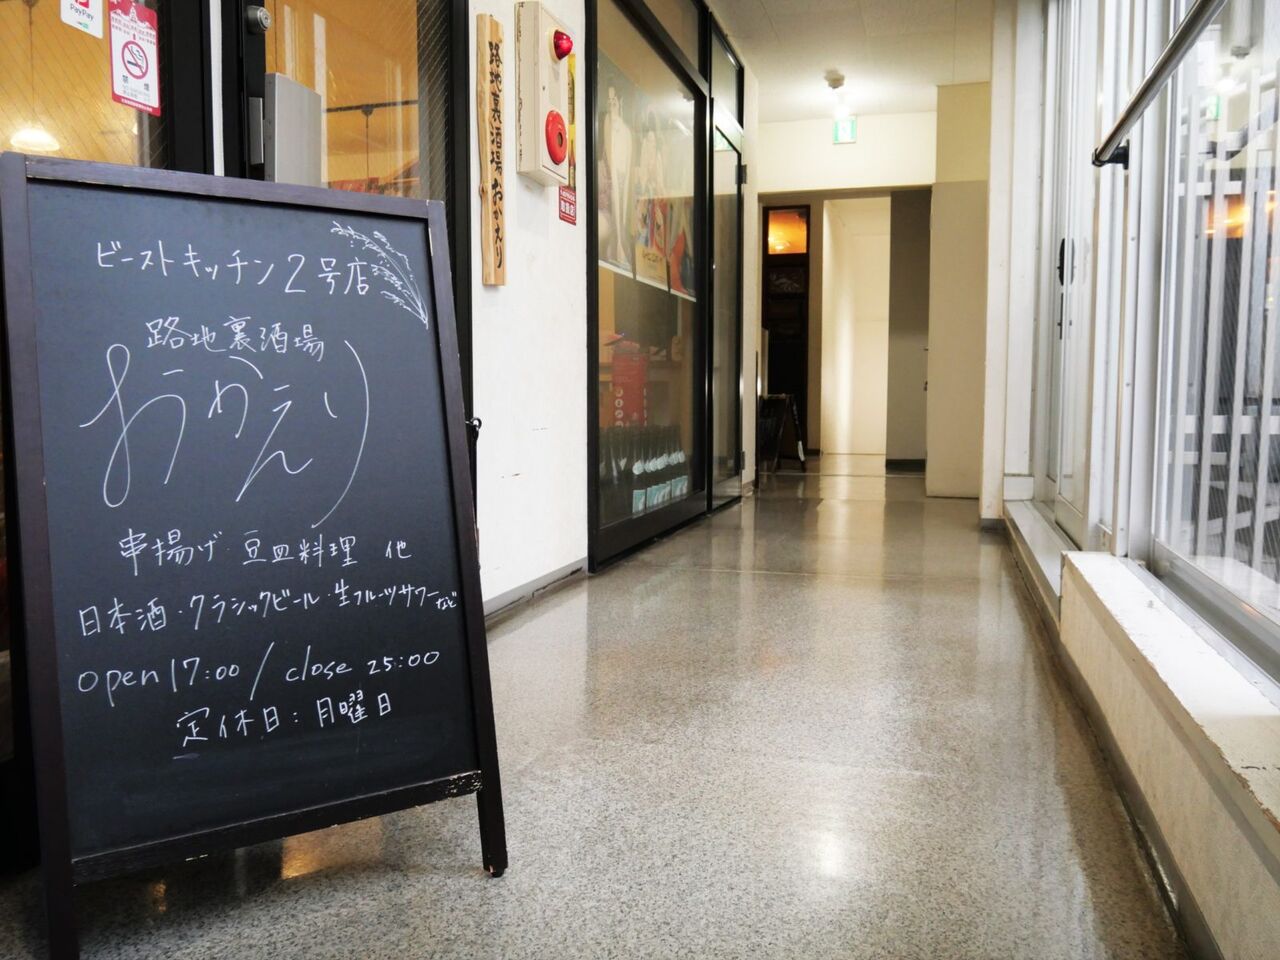 ビーストキッチン2号店
路地裏酒場
おかえり
串揚げ・豆皿料理 他
日本酒・クラシックビール・生フルーツサワーなど
open 17:00 / close 25:00
定休日:月曜日
路地裏酒場おかえり
PayPay
禁煙